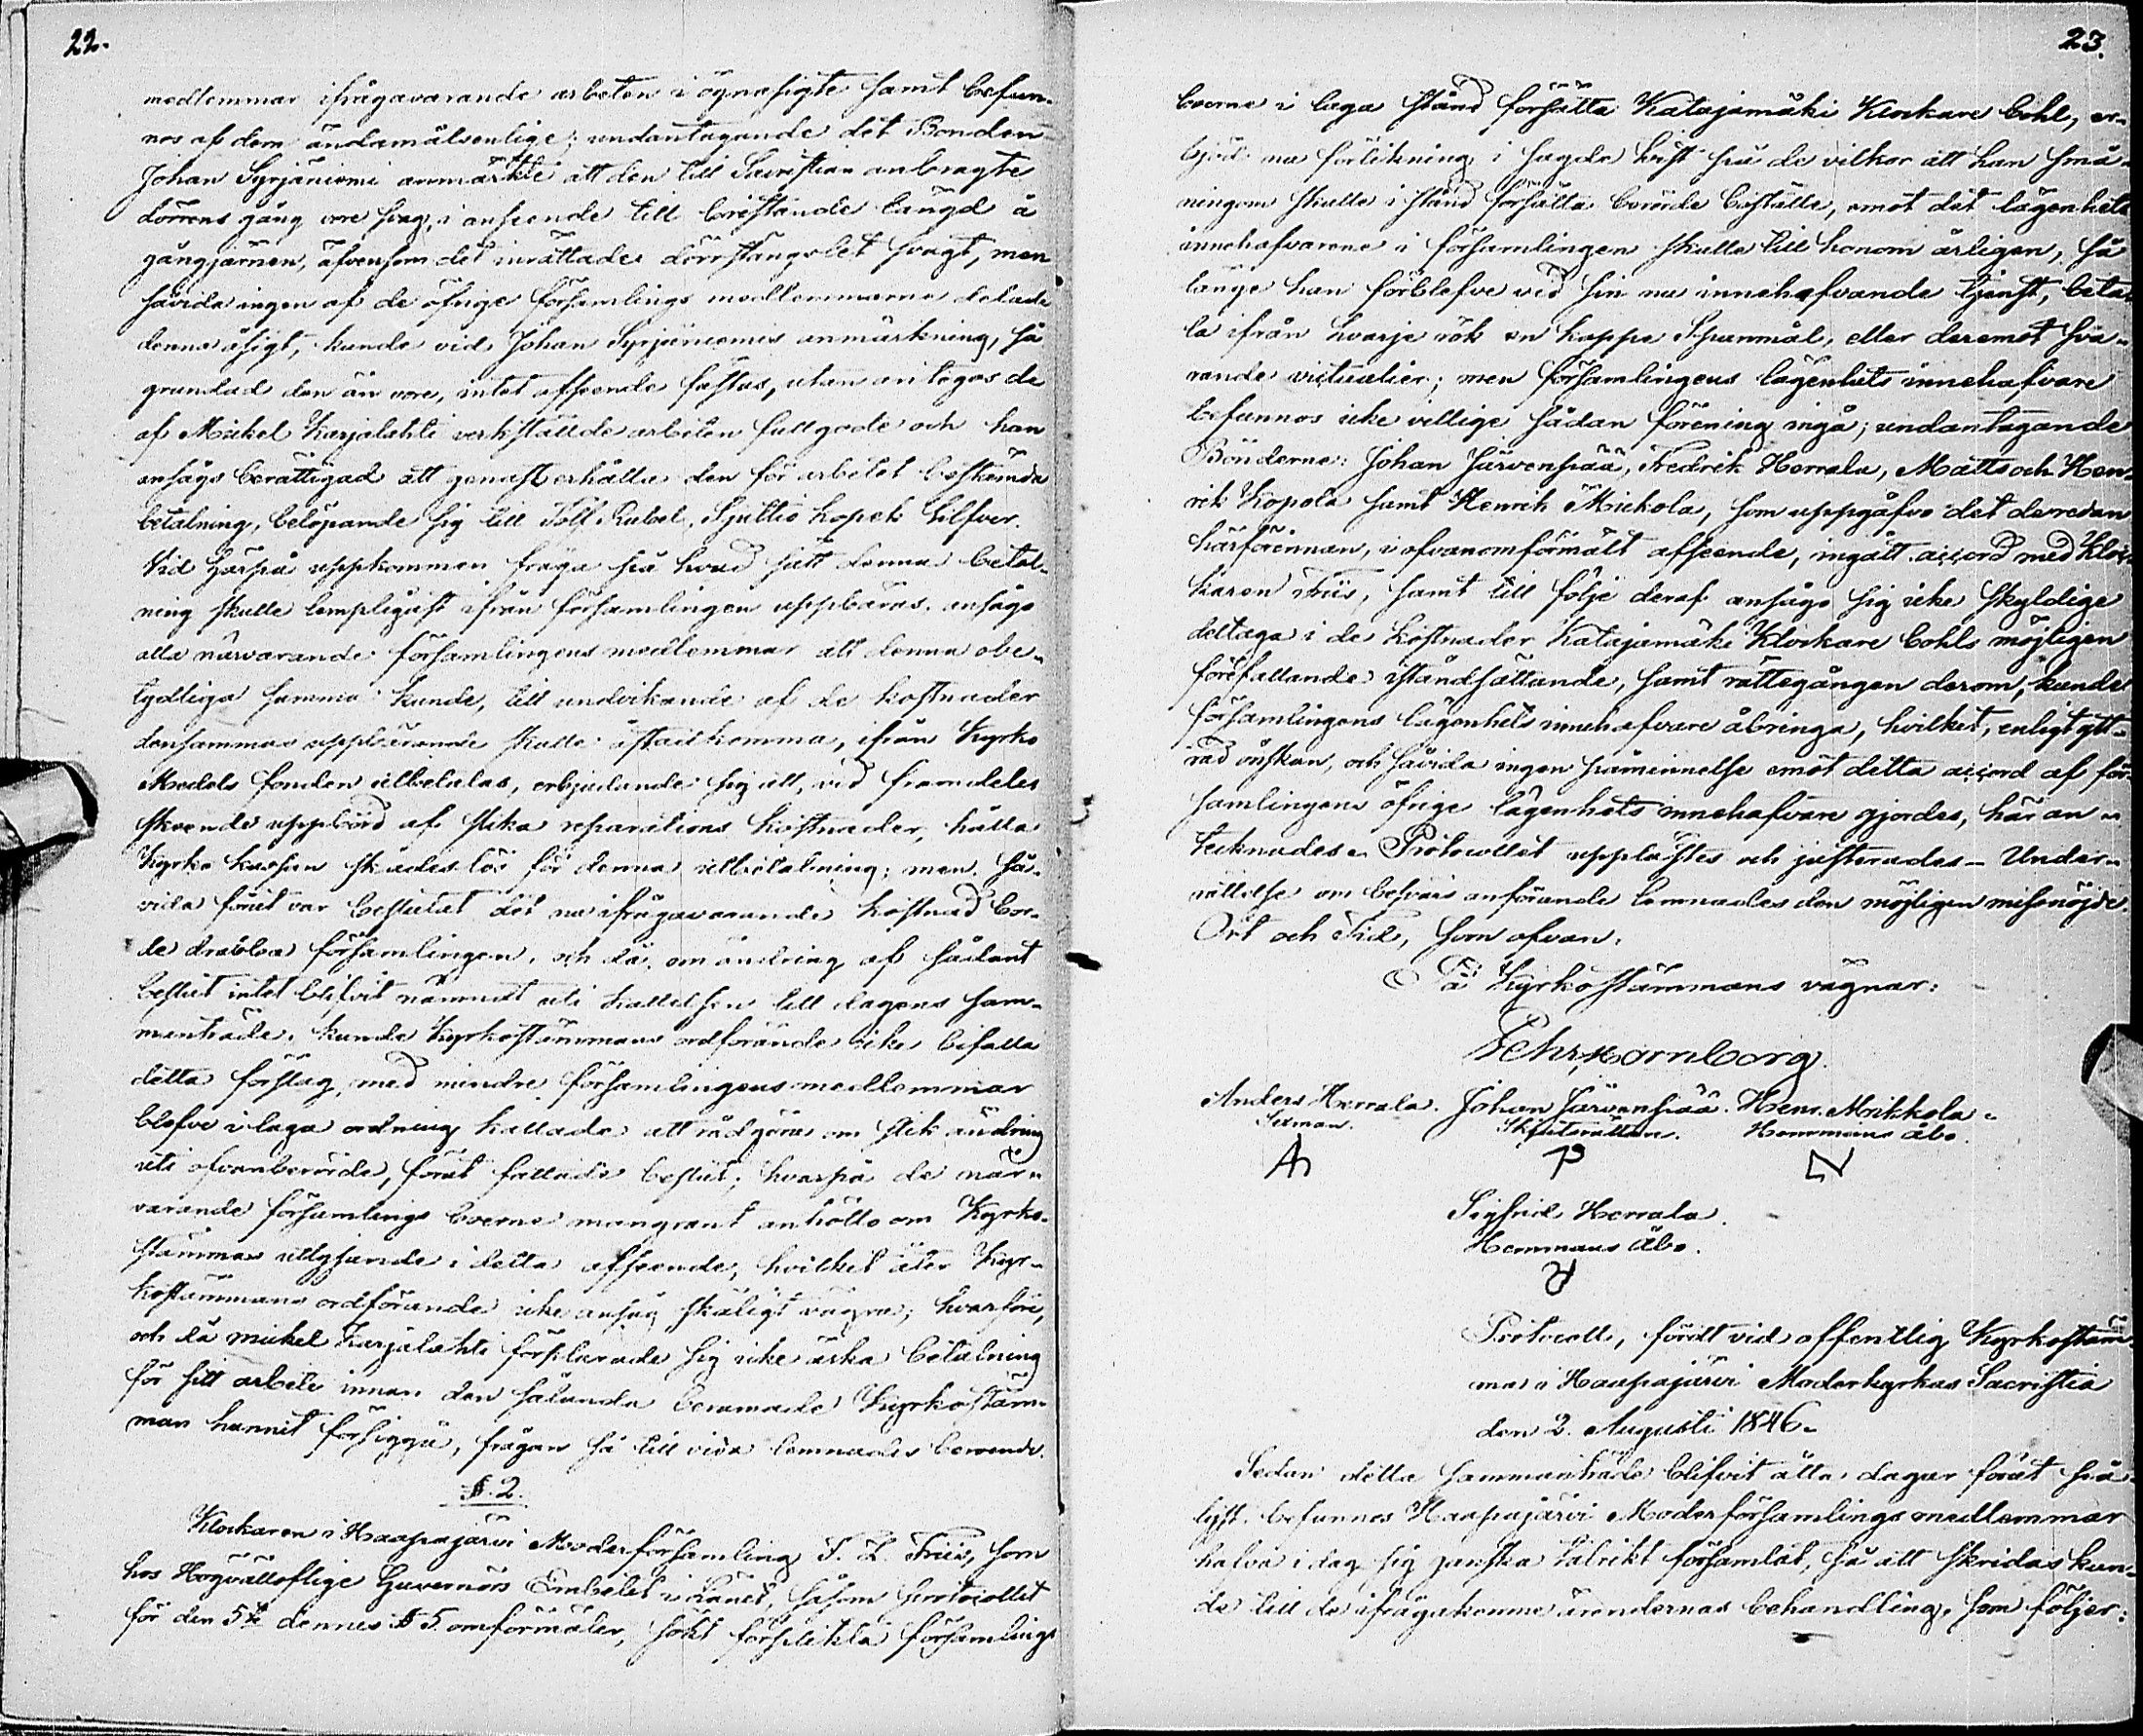 22.
medlemmar ifrågavarande arbeten i ögnasigte samt befun-
nos af dem ändamålsenlige; undantagande det Bonden
Johan Syrjäniemi anmärkte att den till Sacristian anbragte
dörrens gång vore svag, i anseende till bristande längd å
gångjärnen, äfvensom det inrättade dörrstängslet svagt, men
såvida ingen af de öfrige församlings medlemmarne delade
denna åsigt, kunde vid Johan Syrjäniemis anmärkning, så
grundad den än vore, intet afseende fästas, utan antogos de
af Mickel Karjalahti verkställde arbeten fullgode och han
ansågs berättigad att genast erhålla den för arbetet bestämda
betalning, belöpande sig till Tolf Rubel, Sjuttio kopek Silfver.
Vid härpå uppkommen fråga på hvad sätt denna betal-
ning skulle lämpligast ifrån församlingen uppbäras, ansågo
alla närvarande församlingens medlemmar att denna obe-
tydliga summa kunde, till undvikande af de kostnader
densammas uppbärande skulle åstadkomma, ifrån Kyrko
Medels fonden utbetalas, erbjudande sig att, vid framdeles
skeende uppbörd af slika reparations kostnader, hålla
Kyrko kassan skadeslös för denna utbetalning; men så-
vida förut var beslutat det nu ifrågavarande kostnad bor-
de drabba församlingen, och då, om ändring af sådant
beslut intet blifvit nämndt uti kallelsen till dagens sam-
manträde, kunde Kyrkostämmans ordförande icke bifalla
detta förslag, med mindre församlingens medlemmar
blefve i laga ordning kallade att rådgöra om slik ändring
uti ofvanberörde, förut fattade beslut; hvarpå de när-
varande församlings boerne mangrant anhöllo om Kyrko-
stämmas utlysande i detta afseende, hvilket åter Kyr-
kostämmans ordförande icke ansåg skäligt vägra; hvarföre,
och då Mickel Karjalahti förklarade sig icke äska betalning
för sitt arbete innan den sålunda beramade Kyrkostäm-
man hunnit försiggå, frågan så till vida lemnades beroende.
§. 2.
Klockaren i Haapajärvi Moderförsamling T. L. Friis, som
hos Högvälloflige Guvernörs Embetet i Länet, såsom protocollet
för den 5te dennes § 5. omförmäler, sökt förplikta församlings
23.
boerne i laga stånd försätta Katajamäki Klockare Bohl, er-
bjöd nu förlikning i sagde tvist på de vilkor att han små-
ningom skulle i stånd försätta berörde boställe, emot det lägenhets
innehafvarene i församlingen skulle till honom årligen, så
länge han förblefve vid sin nu innehafvande tjenst, beta-
la ifrån hvarje rök en kappe Spannmål, eller deremot sva-
rande victualier; men församlingens lägenhets innehafvare
befunnos icke villige sådan förening ingå; undantagande
Bönderne: Johan Järvenpää, Fredrik Herrala, Matts och Hen-
rik Kopola samt Henrik Mickola, som uppgåfvo det de redan
härförinnan, i ofvanomförmält afseende, ingått accord med Kloc-
karen Friis, samt till följe deraf ansågo sig icke skyldige
deltaga i de kostnader Katajamäki Klockare Bohls möjligen
förefallande iståndsättande, samt rättegången derom, kunde
församlingens lägenhets innehafvare åbringa, hvilket, enligt ytt-
rad önskan, och såvida ingen påminnelse emot detta accord af för-
samlingens öfrige lägenhets innehafvare gjordes, här an-
tecknades. Protocollet upplästes och justerades. Under-
rättelse om besvärs anförande lemnades den möjligen missnöjde.
Ort och Tid, som ofvan.
På Kyrkostämmans vägnar:
Pehr Hornborg.
Anders Herrala. Johan Järvenpää. Henr. Mikkola.
Sexman. Skjutsrättare. Hemmans åbo.
Sigfrid Herrala.
Hemmans åbo.
Protocoll, fördt vid offentlig Kyrkostäm-
ma i Haapajärvi Moderkyrkas Sacristia
den 2. Augusti 1846.
Sedan detta sammanträde blifvit åtta dagar förut på-
lyst, befunnos Haapajärvi Moderförsamlings medlemmar
hafva i dag sig ganska talrikt församlat, så att skridas kun-
de till de ifrågakomne ärendernas behandling, som följer: